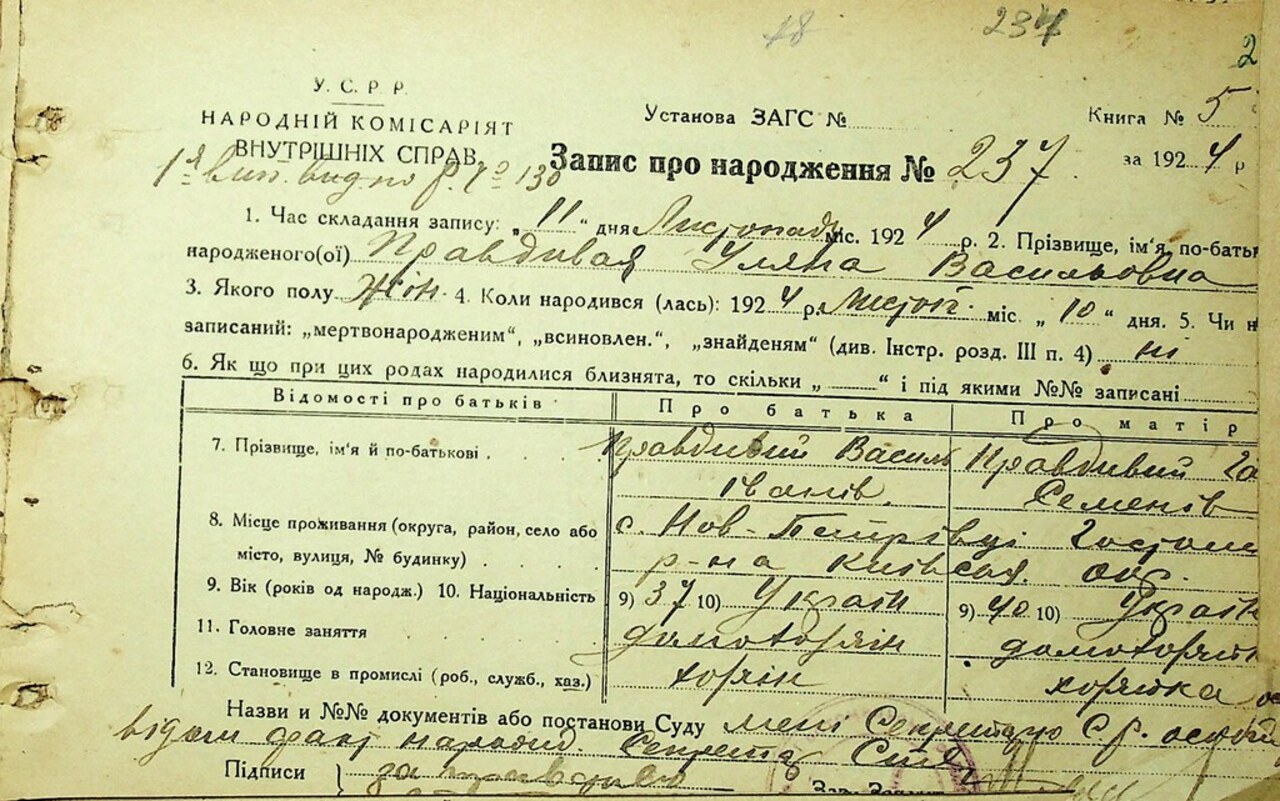 18 237
2
У. С. Р. Р.
НАРОДНІЙ КОМІСАРІЯТ
ВНУТРІШНІХ СПРАВ
Установа ЗАГС №
Книга № 5
Запис про народження № 237
за 1924 р
1. Час складання запису: „11“ дня Листопада міс. 1924 р. 2. Прізвище, ім'я, по-батьк
народженого(ої) Правдивая Уляна Васильовна
3. Якого полу Жін. 4. Коли народився (лась): 1924 р. Листоп. міс. „10“ дня. 5. Чи н
записаний: „мертвонародженим“, „всиновлен.“, „знайденям“ (див. Інстр. розд. III п. 4) ні
6. Як що при цих родах народилися близнята, то скільки „ “ і під якими №№ записані
Відомості про батьків Про батька Про матір
7. Прізвище, ім'я й по-батькові Правдивий Василь Правдивий
Іванів. Семенів
8. Місце проживання (округа, район, село або с. Нов-Петрівці Гостом
місто, вулиця, № будинку) р-на Київская окр.
9. Вік (років од народж.) 10. Національність 9) 37 10) Україн 9) 40 10) Україн
11. Головне заняття домохорян
12. Становище в промислі (роб., служб., хаз.) хорян
Назви и №№ документів або постанови Суду мені Секретарю С.р. особ
відом факт народж. Секрета
Підписи